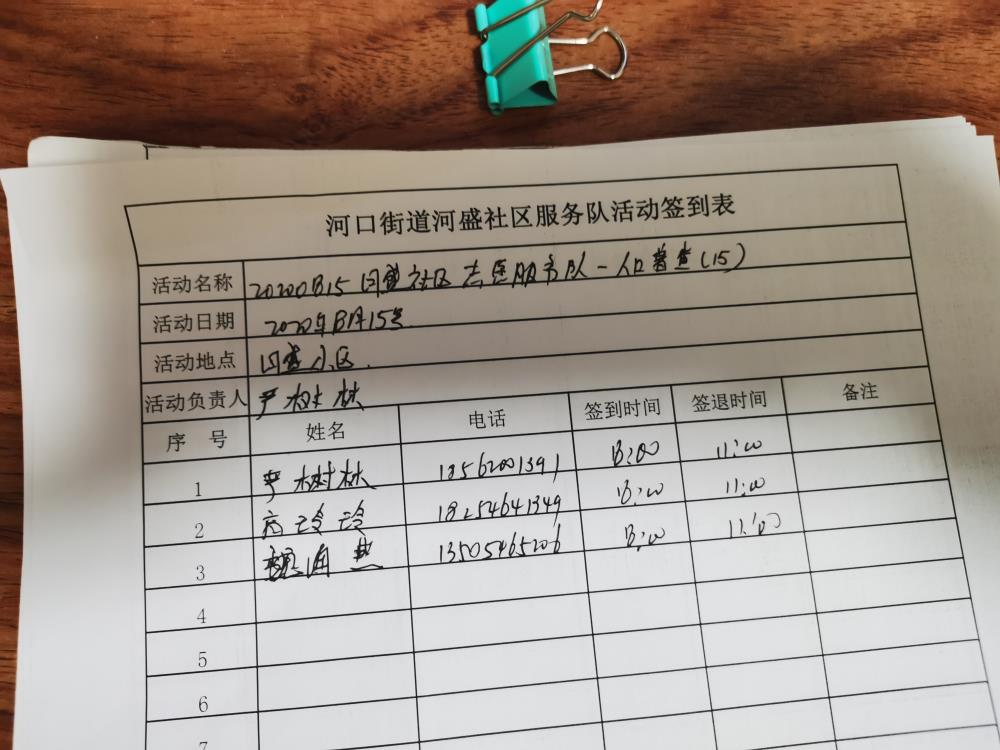 河口街道河盛社区服务队活动签到表
活动名称 20200815 河盛社区志愿服务队-人口普查(15)
活动日期 2020年8月15号
活动地点 河盛小区.
活动负责人 严树林
序 号 姓名 电话 签到时间 签退时间 备注
1 严树林 18562001391 8:00 11:00
2 玲玲 18254641349 8:00 11:00
3 13505465206 8:00 11:00
4
5
6
7